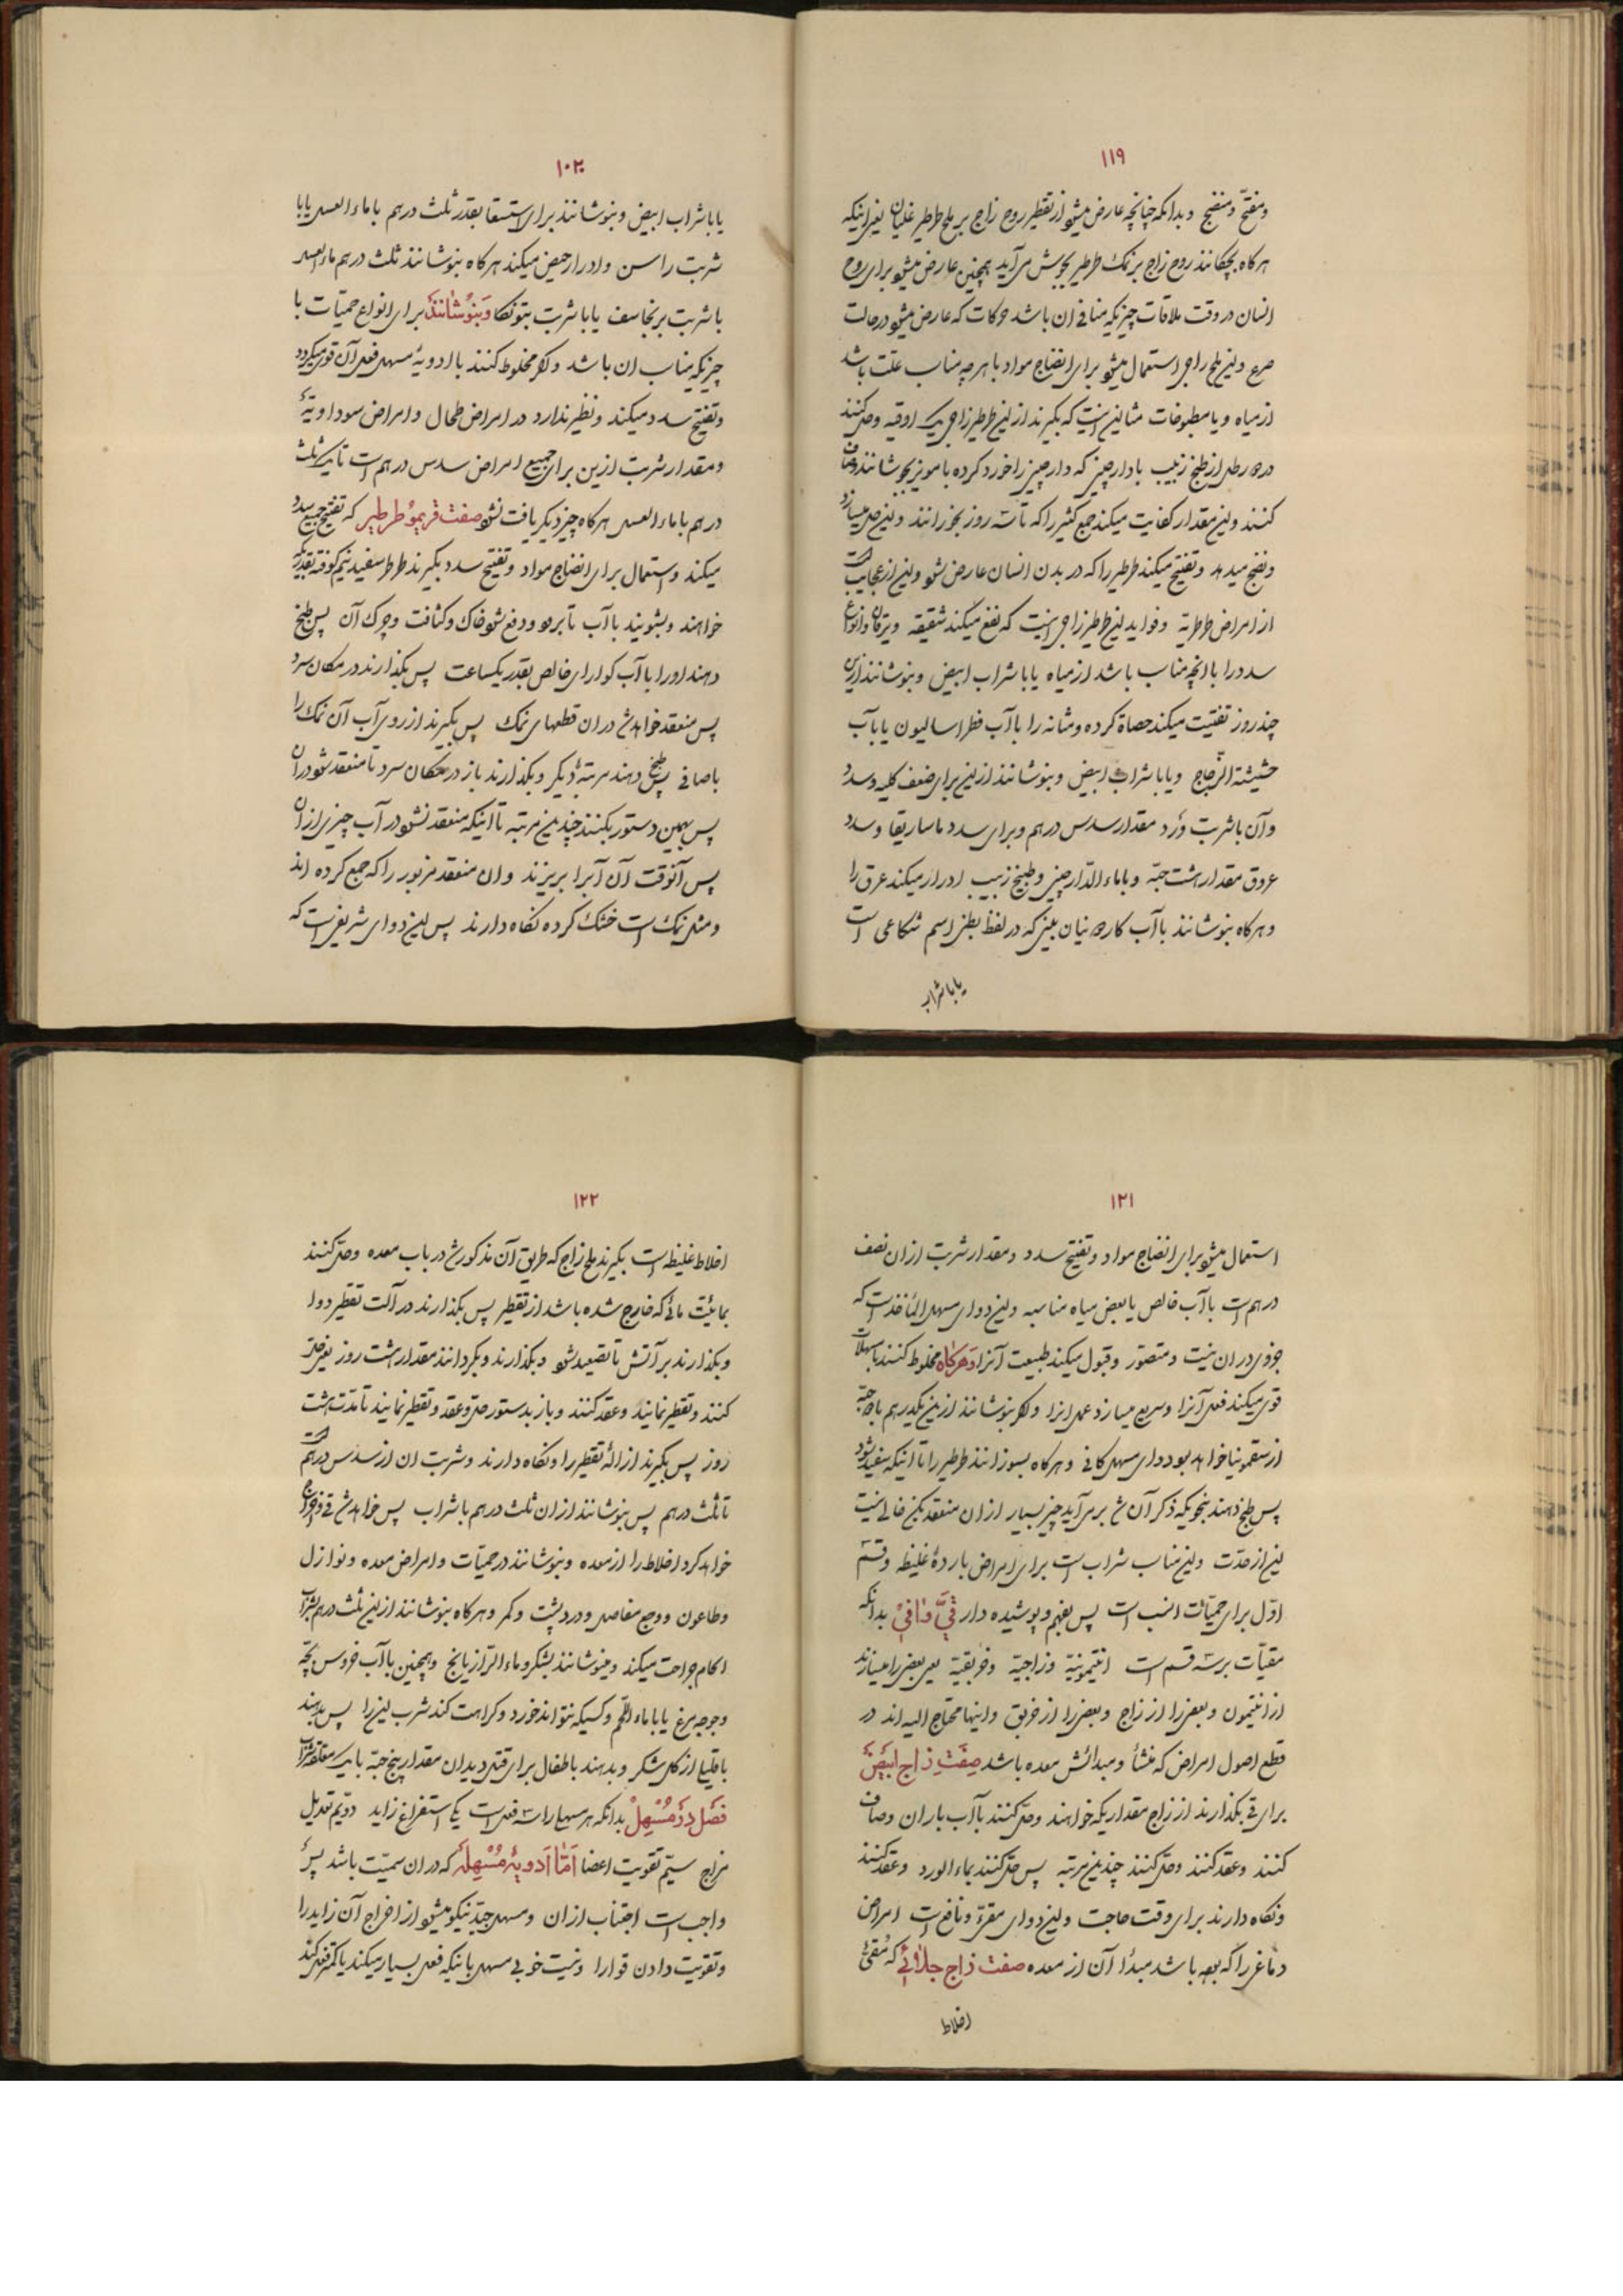 ۱۱۹
ومفتّح ومنضج وبدانکه چنانچه عارض میشو از تقطیر روح زاج بر ملح طرطیر غلیان یعنی اینکه
هرکاه بچکانند روح زاج بر نمک طرطیر بجوش می آید همچنین عارض میشو برای روح
انسان در وقت ملاقات چیزیکه منافی ان باشد حرکات که عارض میشو در حالت
صرع واین ملح زاجی استعمال میشو برای انضاج مواد با هرچه مناسب علت باشد
از میاه و یا مطبوخات مثالش اینست که بکیرند از این طرطیر زاجی یک اوقیه وحل کنند
در ده رطل از طبخ زبیب با دارچینی که دارچینی را خورد کرده با مویز بجوشانند وصاف
کنند واین مقدار کفایت میکند جمع کثیر را که تا سه روز بخورانند واین حل میسازد
ونضج میدهد وتفتیح میکند طرطیر را که در بدن انسان عارض شو واین از عجایب است
از امراض طرطریه وفواید این طرطیر زاجی اینست که نفع میکند شقیقه ویرقان وانواع
سدد را با انچه مناسب باشد از میاه یا با شراب ابیض وبنوشانند ازین
چند روز تفتیت میکند حصاة کرده ومثانه را با آب فطراسالیون یا با آب
حشیشة الزجاج ویا با شراب ابیض وبنوشانند از این برای ضعف کلیه وسدد
وآن با شربت ورد مقدار سدس درهم وبرای سدد ماساریقا وسدد
عروق مقدار هشت حبّه وبا ماء الدّارچینی وطبخ زبیب ادرار میکند عرق را
وهرکاه بنوشانند با آب کارده نیان بینی که در لفظ بطنی اسم شکاعی است
یا با شراب
۱۰۲۰
یا با شراب ابیض وبنوشانند برای استسقا بقدر ثلث درهم با ماء العسل یا با
شربت راسن وادرار حیض میکند هرکاه بنوشانند ثلث درهم ماء العسل
با شربت برنجاسف یا با شربت بتونکا وبنوشانند برای انواع حمّیات با
چیزیکه مناسب ان باشد واکر مخلوط کنند با ادویهٔ مسهل فعل آن قوی میکردد
وتفتیح سدد میکند ونظیر ندارد در امراض طحال وامراض سوداویّهٔ
ومقدار شربت ازین برای جمیع امراض سدس درهم است تا یک ثلث
درهم با ماء العسل هرکاه چیز دیکر یافت نشو صفت قریمو طرطیر که تفتیح جمیع سدد
میکند واستعمال برای انضاج مواد وتفتیح سدد بکیرند طرطر سفید نیم کوفته بقدریکه
خواهند وبشویند با آب تا برود ودفع شو خاک وکثافت وچرک آن پس طبخ
دهند اورا با آب کوارای خالص بقدر یکساعت پس بکذارند در مکان سرد
پس منعقد خواهد شد دران قطعهای نمک پس بکیرند از روی آب آن نمک را
با صافی پس طبخ دهند مرتبهٔ دیکر وبکذارند باز در مکان سرد تا منعقد شو دران
پس بهمین دستور بکنند چندین مرتبه تا اینکه منعقد نشو در آب چیزی ازان
پس آنوقت آن آبرا بریزند وان منعقد مزبور را که جمع کرده اند
ومثل نمک است خشک کرده نکاه دارند پس این دوای شریفی است که
۱۲۱
استعمال میشو برای انضاج مواد وتفتیح سدد ومقدار شربت ازان نصف
درهم است با آب خالص یا بعضی میاه مناسبه واین دوای سهل المأخذ است که
خوفی دران نیست ومتصوّر وقبول میکند طبیعت آنرا وهرکاه مخلوط کنند با مسهلات
قوی میکند فعل آنرا وسریع میسازد عمل انرا واکر بنوشانند ازین یکدرهم با ده حبّه
از سقمونیا خواهد بود دوای مسهل کافی وهرکاه بسوزانند طرطیر را تا اینکه سفید شود
پس طبخ دهند بنحویکه ذکر آن شد برمی آید چیز بسیار ازان منعقد لیکن خالی نیست
این از حدّت واین مناسب شراب است برای امراض باردهٔ غلیظه وقسم
اوّل برای حمیّات انسب است پس بفهم وپوشیده دار فیّ وافیٔ بدانکه
مقیّات بر سه قسم است انتیمونیّه وزاجیّه وخربقیّه یعنی بعضی را میسازند
از انتیمون وبعضی را از زاج وبعضی را از خربق واینها محتاج الیه اند در
قطع اصول امراض که منشأ ومبدائش معده باشد صفت زاج ابیض
برای قی بکذارند از زاج مقداریکه خواهند وحل کنند با آب باران وصاف
کنند وعقد کنند وحل کنند چندین مرتبه پس حل کنند بماء الورد وعقد کنند
ونکاه دارند برای وقت حاجت واین دوای مقرّی ونافع است امراض
دماغی را که بوده باشد مبدا آن از معده صفت زاج جلائی که مُقئ
اخلاط
۱۲۲
اخلاط غلیظه است بکیرند ملح زاج که طریق آن مذکور شد در باب معده وحل کنند
بمائیّت مائی که خارج شده باشد از تقطیر پس بکذارند در آلت تقطیر دوا
وبکذارند بر آتش تا تصعید شو وبکذارند وبکردانند مقدار هشت روز یعنی حل
کنند وتقطیر نمایند وعقد کنند وباز بدستور حل وعقد وتقطیر نمایند تا مدّت هشت
روز پس بکیرند از الهٔ تقطیر را ونکاه دارند وشربت ان از سدس درهم است
تا ثلث درهم پس بنوشانند ازان ثلث درهم با شراب پس خواهد شد قی واخراج
خواهد کرد اخلاط را از معده وبنوشانند در حمیّات وامراض معده ونوازل
وطاعون ووجع مفاصل ودرد پشت وکمر وهرکاه بنوشانند ازین ثلث درهم بشراب
الحام جراحت میکند ومینوشانند بشکر وماء الرازیانج وهمچنین با آب خروس بچّه
وجوجه مرغ یا با ماء اللّحم وکسیکه نتواند خورد وکراهت کند شرب این را پس بدهند
با قلیا از کل شکر وبدهند باطفال برای قتل دیدان مقدار پنج حبّه با یک ملعقه شراب
فصل در مسهل بدانکه هر مسهلی را سه فعل است یکی استفراغ زاید دویّم تعدیل
مزاج سیّم تقویت اعضا امّا ادویهٔ مسهله که دران سمیّت باشد پس
واجب است اجتناب ازان ومسهل جیّد نیکو میشو از اخراج آن زاید را
وتقویت دادن قوا را ونیست خوبی مسهل باینکه فعل بسیار میکند یا کمتر فعل کند